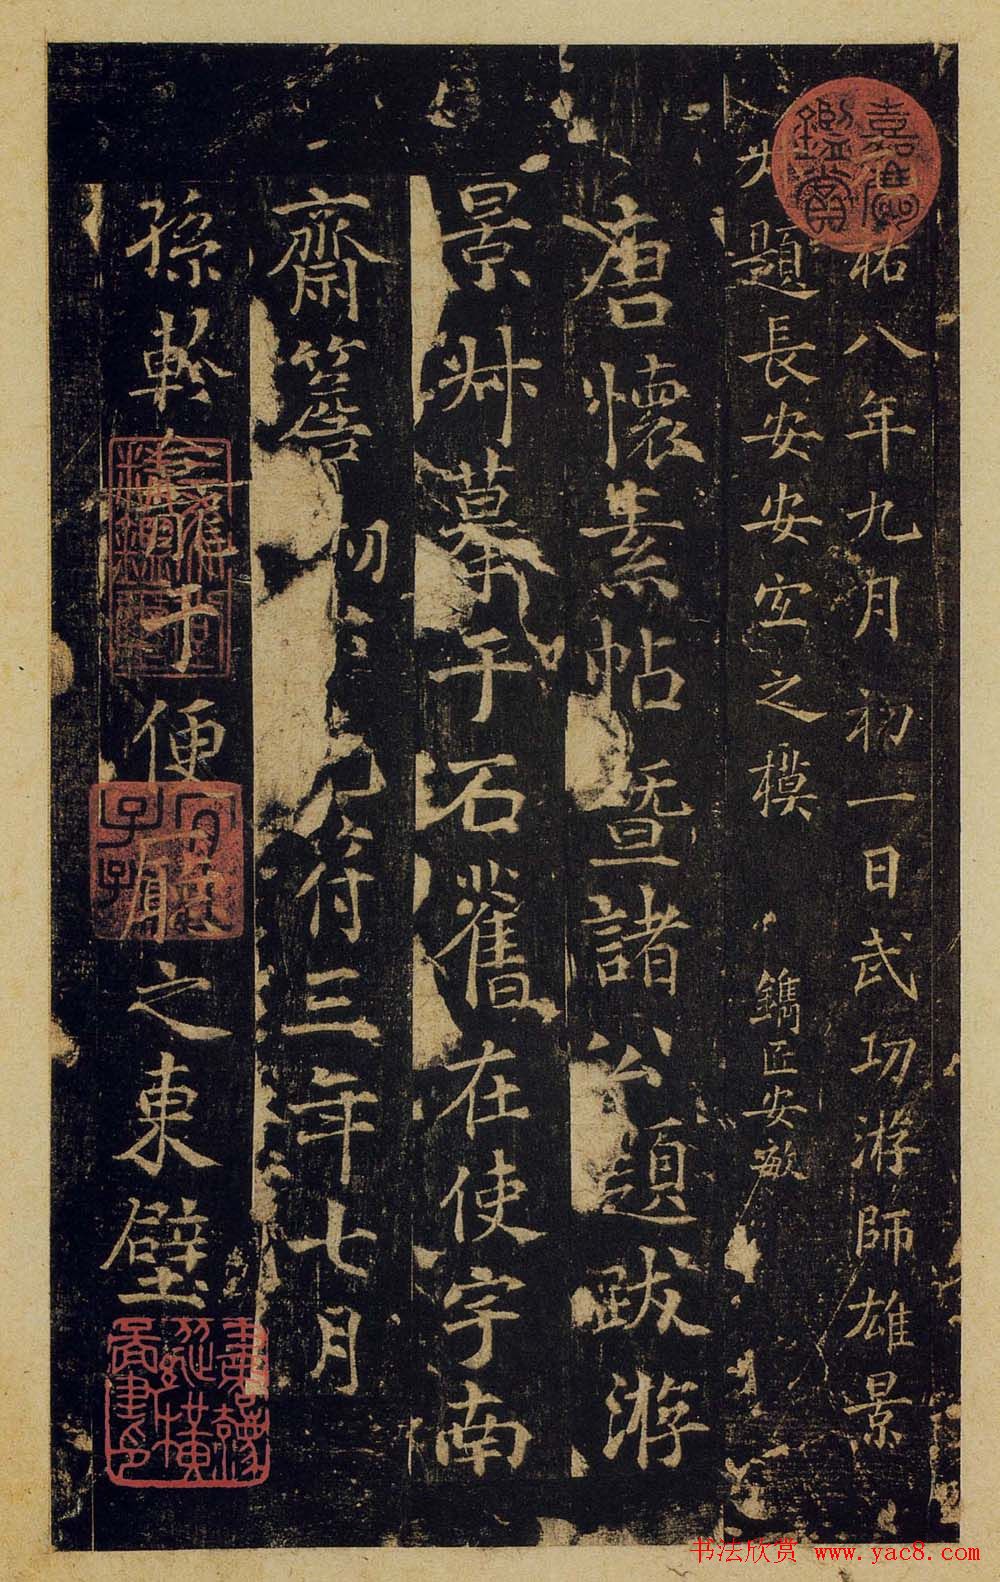 祐八年九月初一日武功游師雄景
叔題長安安宜之模 鐫匠安敏
唐懷素帖暨諸公題跋游
景叔摹于石舊在使字南
齋簷 元符三年七月
孫軫命 于便廳之東壁
嘉慶鑑賞
宜子孫
书法欣赏 www.yac8.com